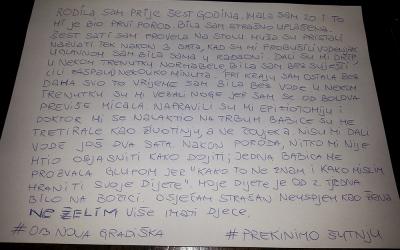 RODILA SAM PRIJE ŠEST GODINA, IMALA SAM 20 I TO
MI JE BIO PRVI POROD, BILA SAM STRAŠNO UPLAŠENA.
ŠEST SATI SAM PROVELA NA STOLU, MUŽA SU PRISTALI
NAZVATI TEK NAKON 3 SATA, KAD SU MI PROBUŠILI VODENJAK.
UGLAVNOM SAM BILA SAMA U RAĐAONI. DALI SU MI DRIP,
U NEKOM TRENUTKU NORMABELE, BILA SAM BEZ SVIJESTI
(ILI ZASPALA) NEKOLIKO MINUTA. PRI KRAJU SAM OSTALA BEZ
DAHA. SVO TO VRIJEME SAM BILA BEZ VODE. U NEKOM
TRENUTKU SU MI VEZALI NOGE JER SAM SE OD BOLOVA
PREVIŠE MICALA. NAPRAVILI SU MI EPIZIOTOMIJU I
DOKTOR MI SE NALAKTIO NA TRBUH. BABICE SU ME
TRETIRALE KAO ŽIVOTINJU, A NE ČOVJEKA. NISU MI DALI
VODE JOŠ DVA SATA NAKON PORODA, NITKO MI NIJE
HTIO OBJASNITI KAKO DOJITI; JEDNA BABICA ME
PROZVALA GLUPOM JER "KAKO TO NE ZNAM I KAKO MISLIM
HRANITI SVOJE DIJETE". MOJE DIJETE JE OD 2. TJEDNA
BILO NA BOČICI. OSJEĆAM STRAŠAN NEUSPJEH KAO ŽENA.
NE ŽELIM VIŠE IMATI DJECE.
# OB NOVA GRADIŠKA # PREKINIMO ŠUTNJU